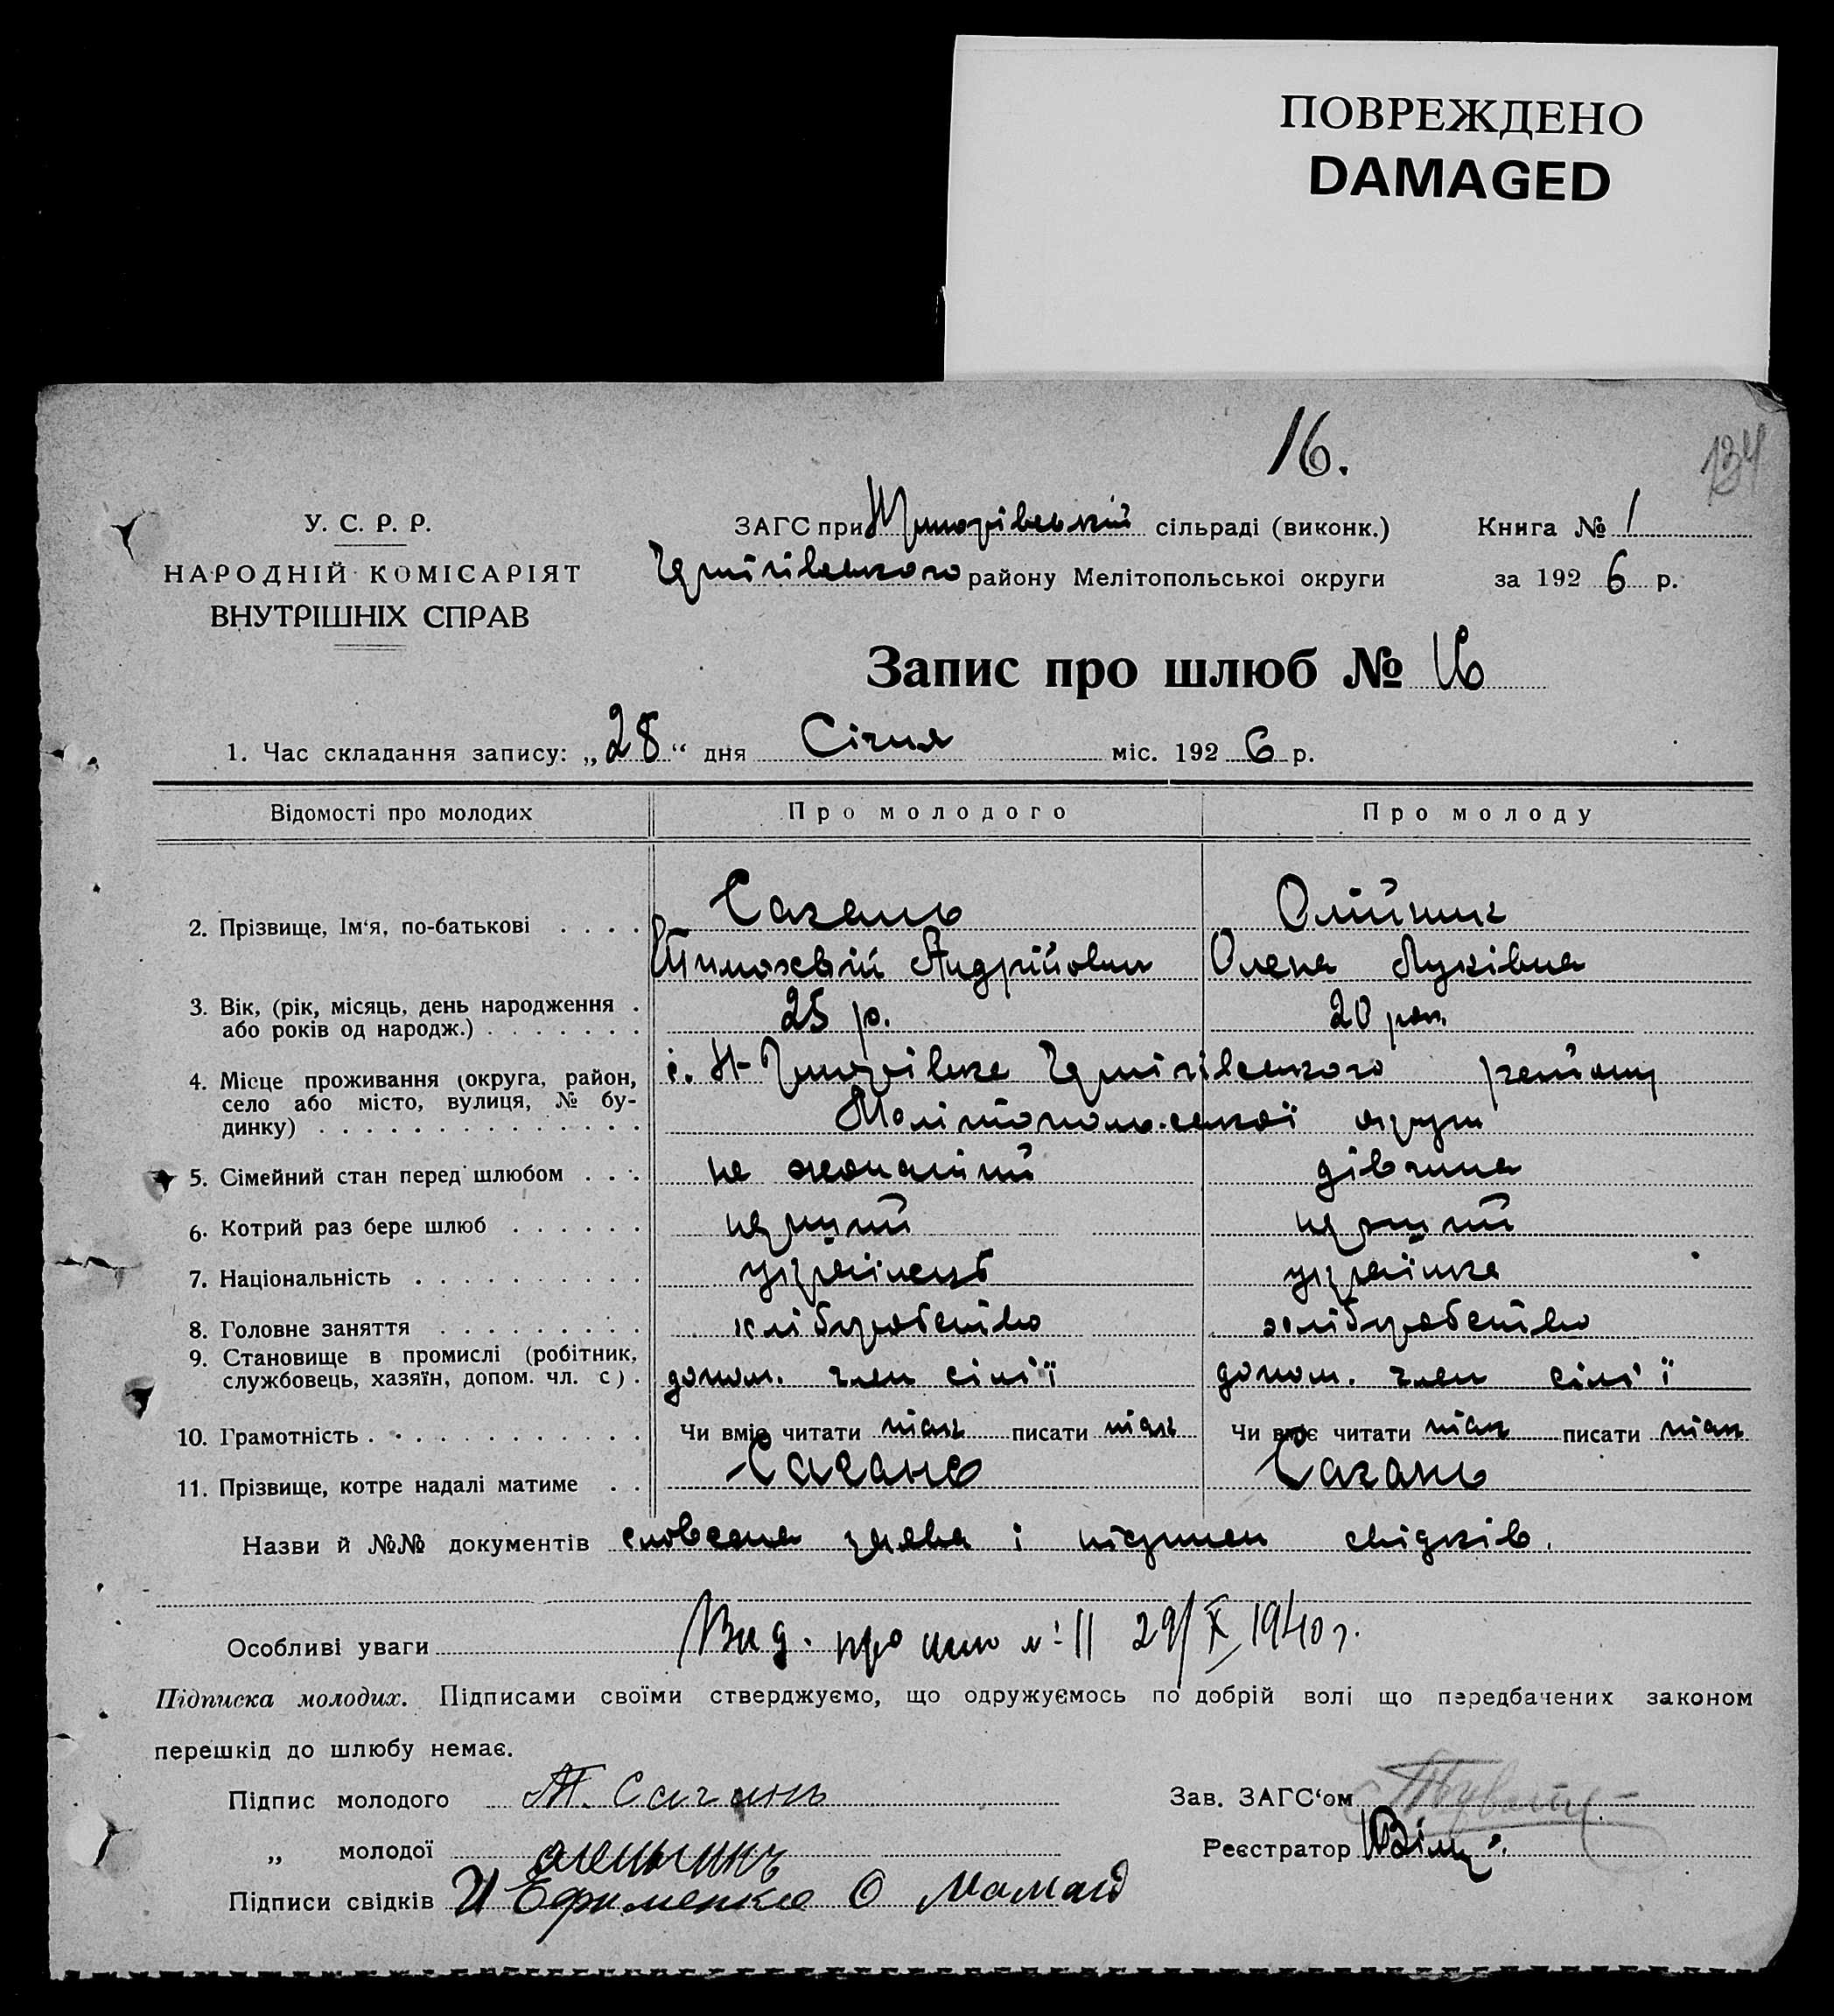 ПОВРЕЖДЕНО
DAMAGED
16.
134
У. С. Р. Р.
НАРОДНІЙ КОМІСАРІЯТ
ВНУТРІШНІХ СПРАВ
ЗАГС при сільраді (виконк.)
Чернігівського району Мелітопольської округи
Книга № 1
за 192 6 р.
Запис про шлюб № 16
1. Час складання запису: „28“ дня Січня міс. 192 6 р.
Відомості про молодих Про молодого Про молоду
2. Прізвище, Ім‘я, по-батькові . . . . Сагань Олійник
Тимохвій Андрійович Олена Луківна
3. Вік, (рік, місяць, день народження . або років од народж.) . . . . . . . 25 р. 20 рок.
4. Місце проживання (округа, район, село або місто, вулиця, № будинку) . . . . . . . . . . . . . . с. Н-Григорівка Чернігівського району
Мелітопольської округи
5. Сімейний стан перед шлюбом . . . не жонатий дівчина
6. Котрий раз бере шлюб . . . . . . перший перший
7. Національність . . . . . . . . . . українець українка
8. Головне заняття . . . . . . . . . хліборобство хліборобство
9. Становище в промислі (робітник, службовець, хазяїн, допом. чл. с) . допом. член сім'ї допом. член сім'ї
10. Грамотність . . . . . . . . . . . . Чи вміє читати так писати так Чи вміє читати так писати так
11. Прізвище, котре надалі матиме . . Сагань Сагань
Назви й №№ документів словесна заява і підписи свідків.
Особливі уваги Вид. про шлю № 11 29/X 1940 г.
Підписка молодих. Підписами своїми стверджуємо, що одружуємось по добрій волі що передбачених законом
перешкід до шлюбу немає.
Підпис молодого Т. Сагань
Зав. ЗАГС‘ом
„ молодої
Реєстратор
Підписи свідків И Ефименко О Мамай